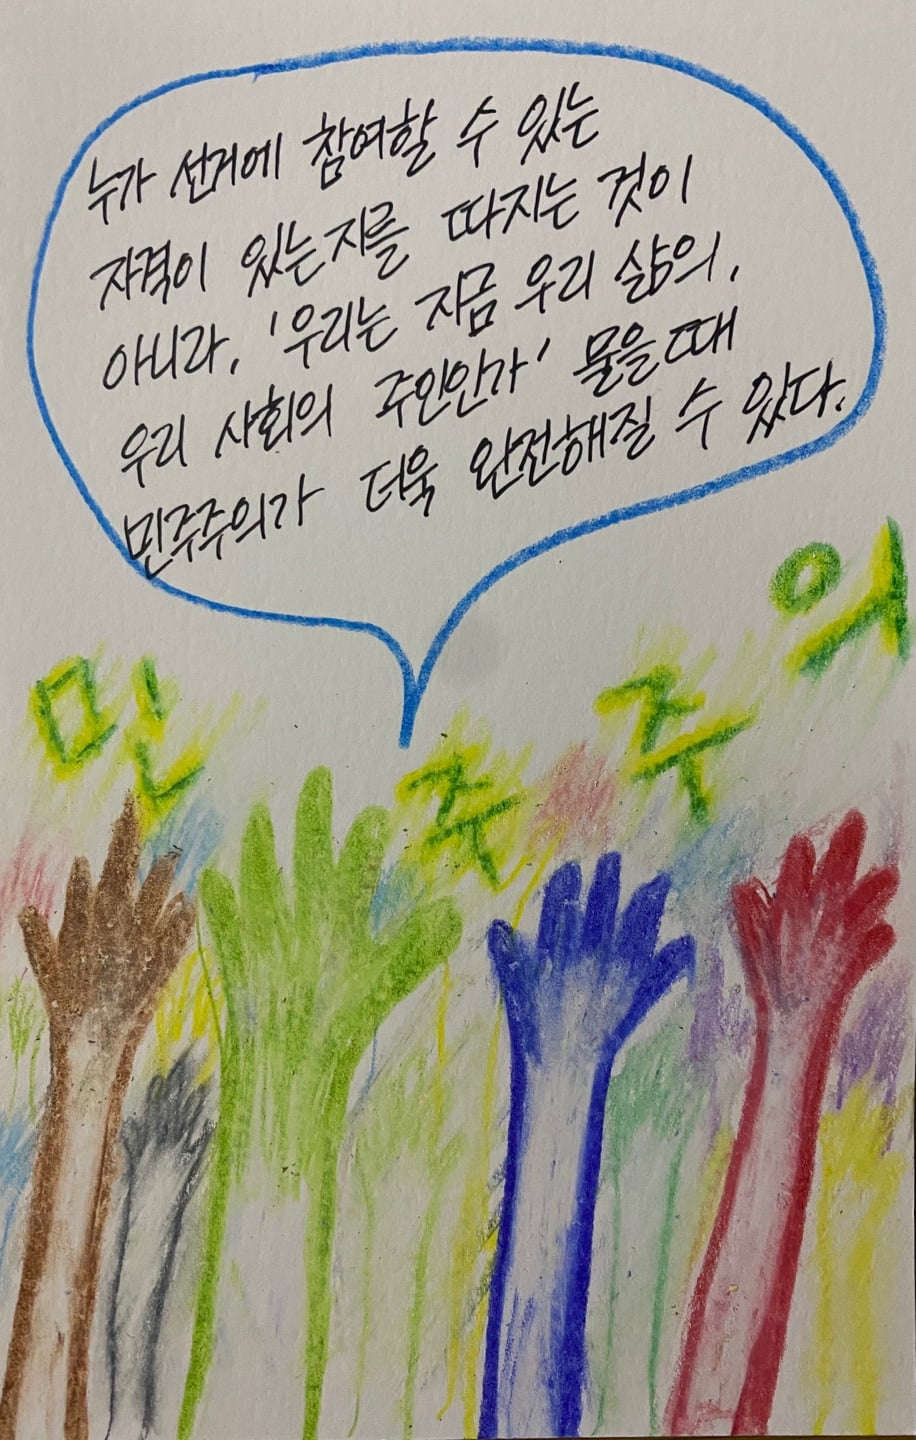 누가 선거에 참여할 수 있는
자격이 있는지를 따지는 것이
아니라, '우리는 지금 우리 삶의,
우리 사회의 주인인가' 물을때
민주주의가 더욱 완전해질 수 있다.
민주주의